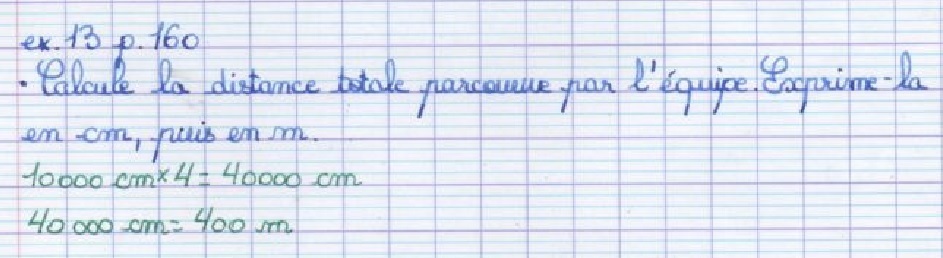 ex. 13 p. 160
• Calcule la distance totale parcourue par l'équipe. Exprime-la
en cm, puis en m.
10000 cm × 4 = 40000 cm
40 000 cm = 400 m